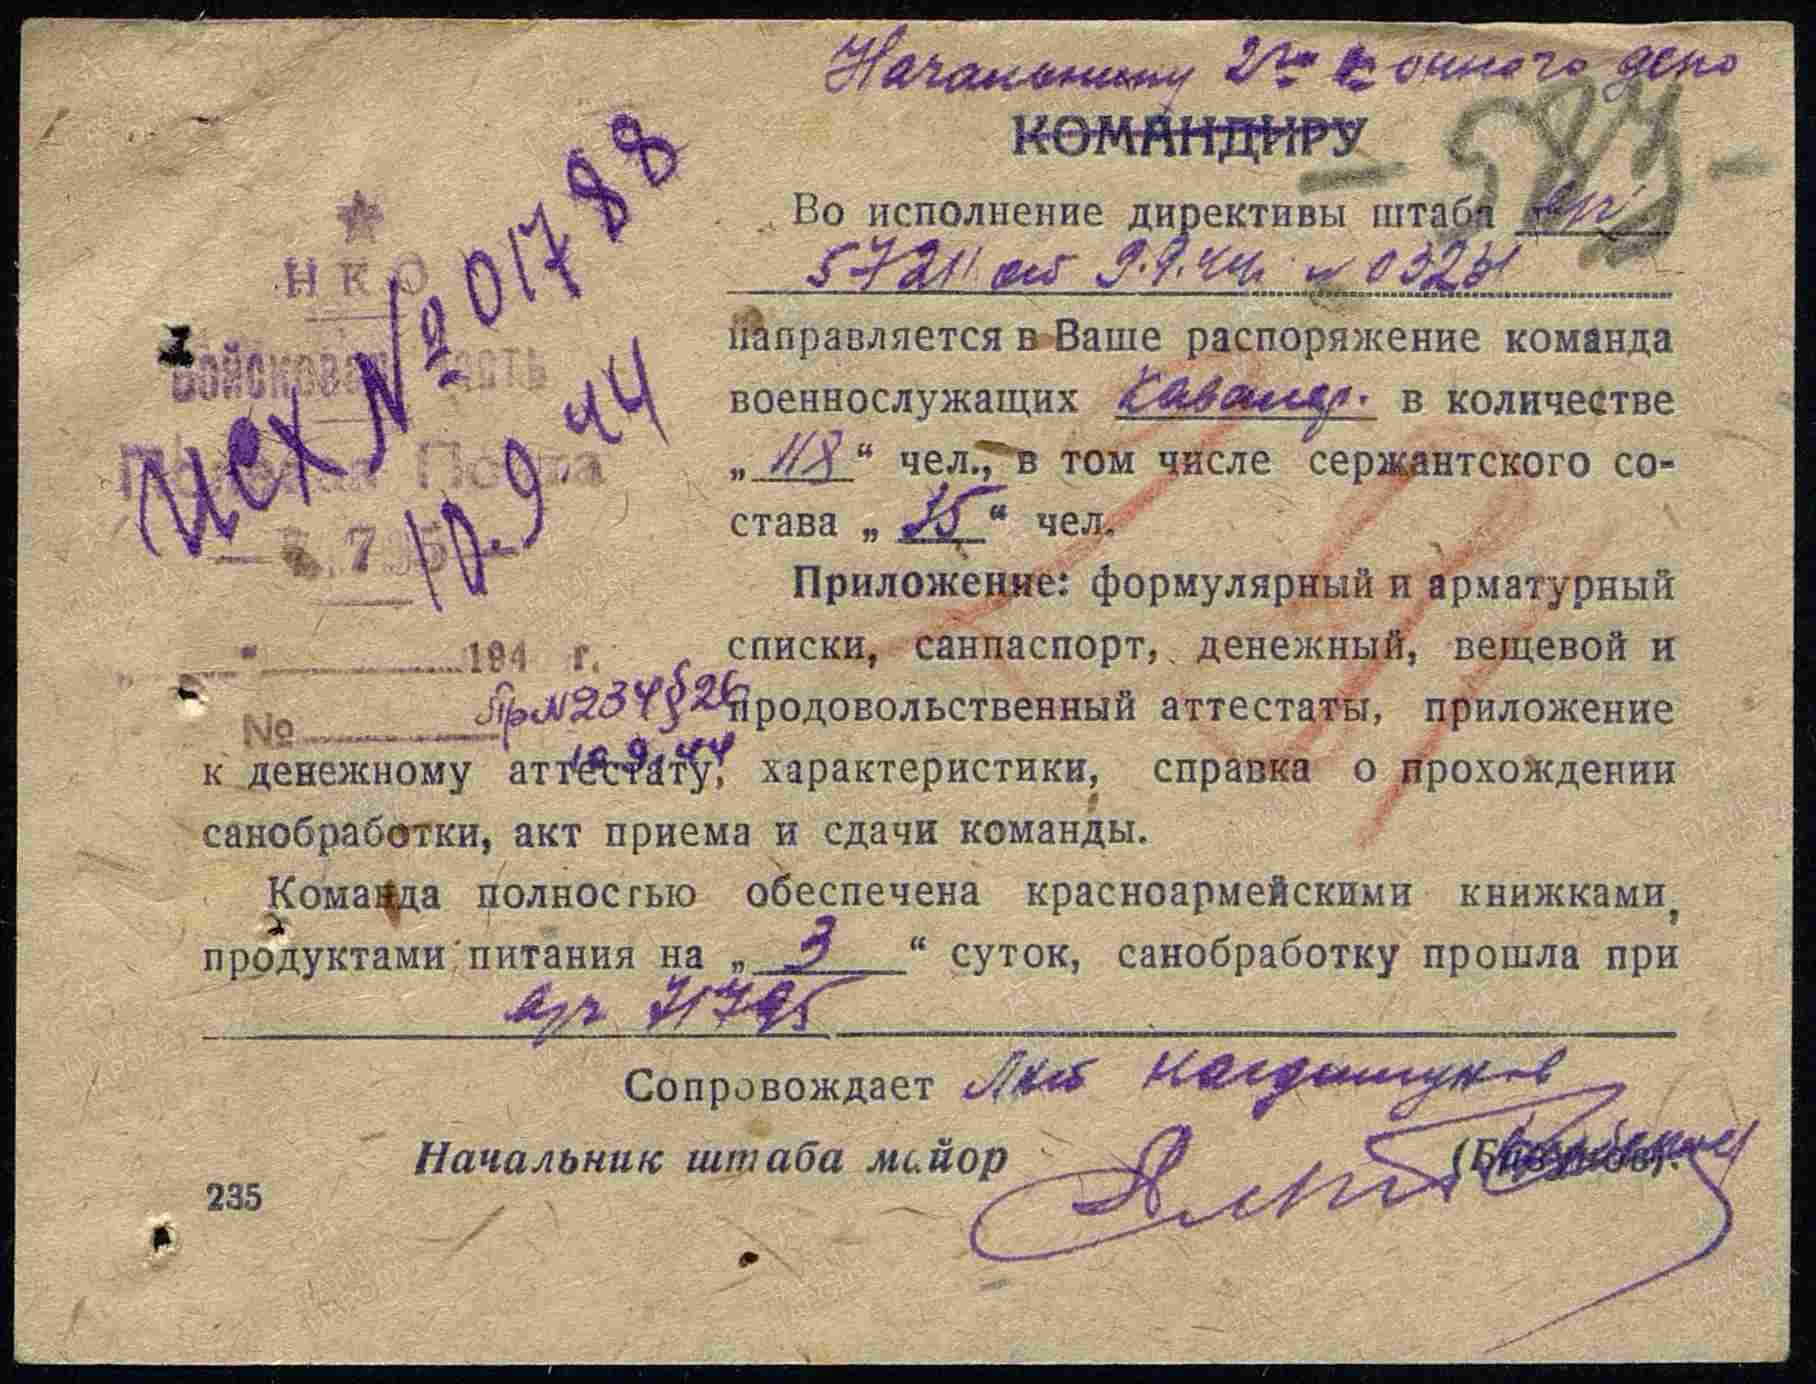 Начальнику 2го конного депо
КОМАНДИРУ
- 583 -
НКО
Войсковая Часть
Полевая Почта
Исх № 01788
10.9.44
„ “ 194 г.
№
Пр №234 § 26
10.9.44
Во исполнение директивы штаба
от 9.9.44г. №
направляется в Ваше распоряжение команда
военнослужащих кавалер. в количестве
„ 118 “ чел., в том числе сержантского со-
става „ 15 “ чел.
Приложение: формулярный и арматурный
списки, санпаспорт, денежный, вещевой и
продовольственный аттестаты, приложение
к денежному аттестату, характеристики, справка о прохождении
санобработки, акт приема и сдачи команды.
Команда полностью обеспечена красноармейскими книжками,
продуктами питания на „ 3 “ суток, санобработку прошла при
71795
Сопровождает
Начальник штаба майор
235